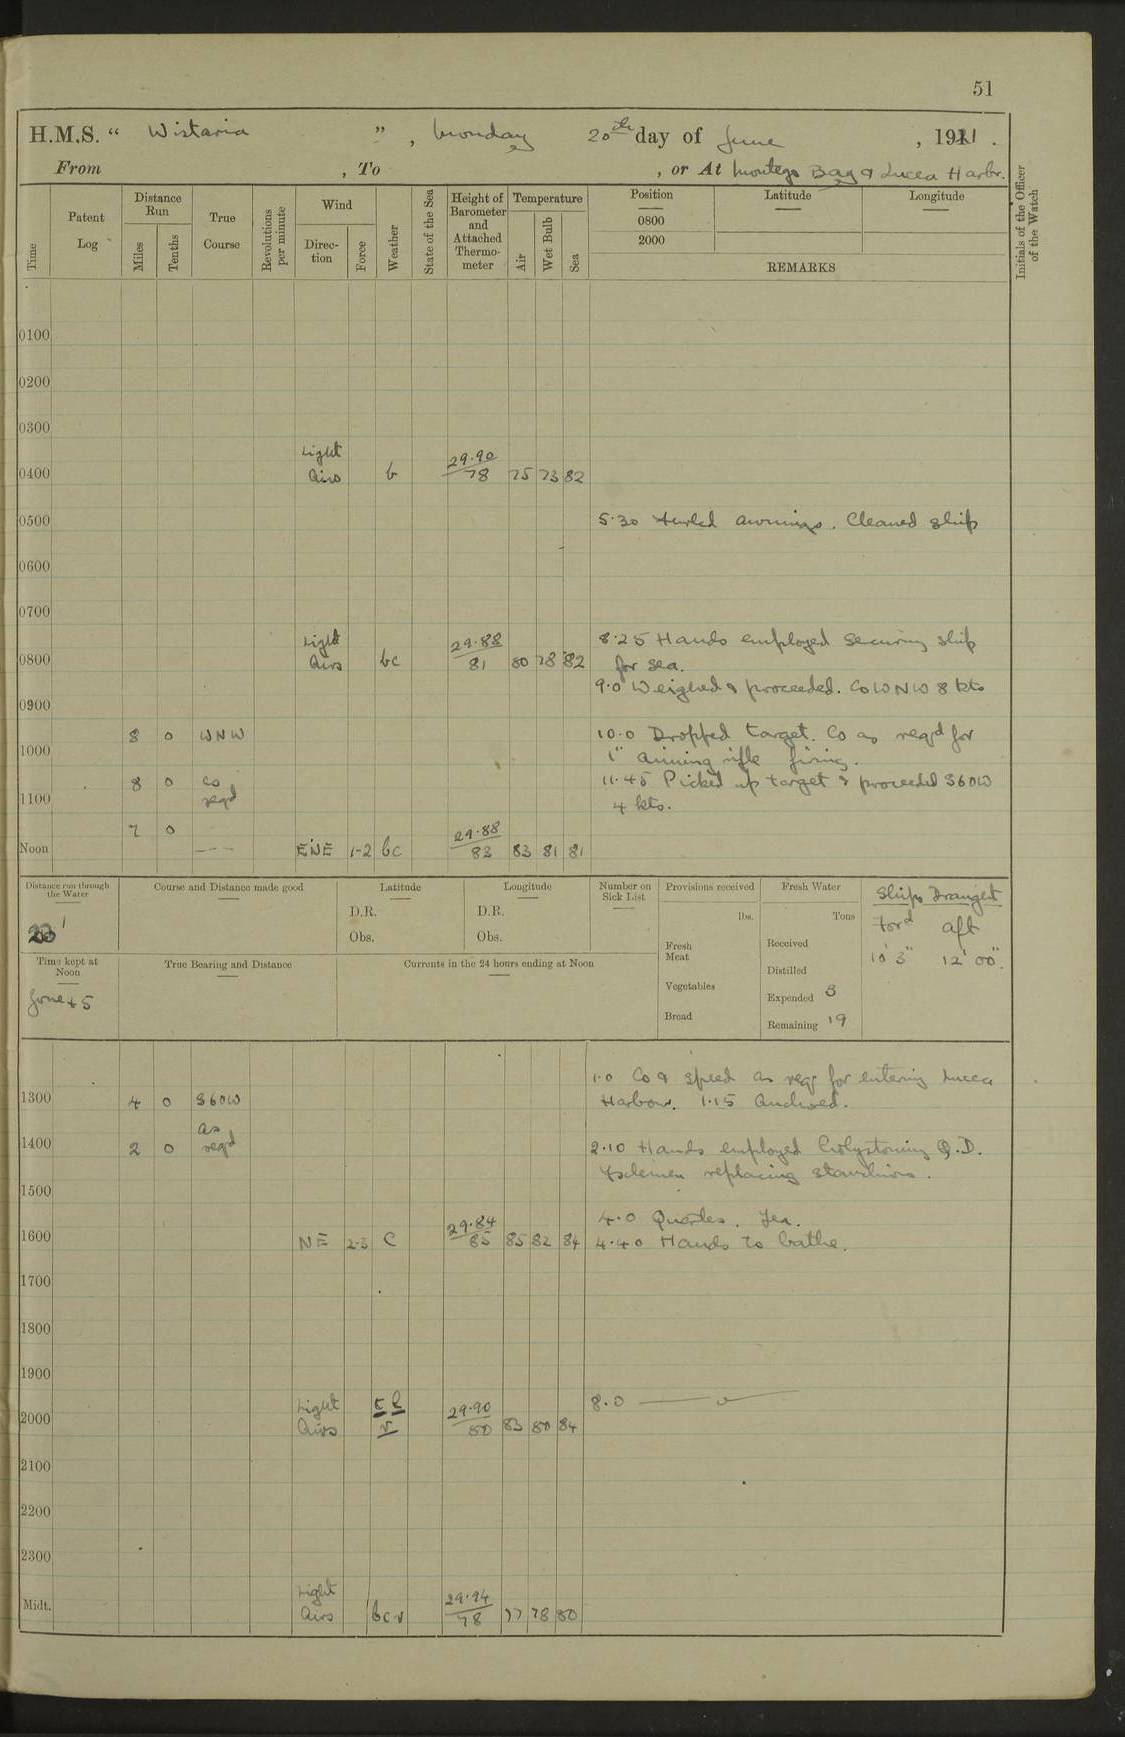 51
H.M.S. " Wistaria ", Monday 20th day of June, 1921.
From , To , or At Montego Bay & Lucea Harbr.
Time
Patent Log
Distance Run
Miles
Tenths
True Course
Revolutions per minute
Wind
Direction
Force
Weather
State of the Sea
Height of Barometer and Attached Thermometer
Temperature
Air
Wet Bulb
Sea
Position Latitude Longitude
0800
2000
REMARKS
Initials of the Officer of the Watch
0100
0200
0300
0400 Light Airs b 29.90 78 75 73 82
0500 5.30 Furled awnings. Cleaned ship
0600
0700
0800 Light Airs bc 29.88 81 80 78 82
8.25 Hands employed securing ship
for sea.
9.0 Weighed & proceeded. Co WNW 8 kts
0900
8 0 WNW
10.0 Dropped target. Co as reqd for
1" aiming rifle firing.
1000
8 0 co reqd
11.45 Picked up target & proceeded S60W
4 kts.
1100
7 0
Noon --- ENE 1-2 bc 29.88 83 83 81 81
Distance run through the Water
23'
Course and Distance made good
Latitude
D.R.
Obs.
Longitude
D.R.
Obs.
Number on Sick List
Provisions received
lbs.
Fresh Meat
Vegetables
Bread
Fresh Water
Tons
Received
Distilled
Expended 3
Remaining 19
Ships Draught
Ford aft
10' 3" 12' 00"
Time kept at Noon
Zone + 5
True Bearing and Distance
Currents in the 24 hours ending at Noon
1.0 Co & speed as req. for entering Lucea
Harbour. 1.15 Anchored.
1300 4 0 S60W
1400 2 0 as reqd
2.10 Hands employed holystoning Q.D.
replacing stanchions.
1500
4.0 Quarters. Tea.
1600 NE 2-3 c 29.84 85 85 82 84
4.40 Hands to bathe.
1700
1800
1900
8.0
2000 Light Airs 29.90 80 83 80 84
2100
2200
2300
Midt. Light Airs bc.v 29.94 78 77 78 80